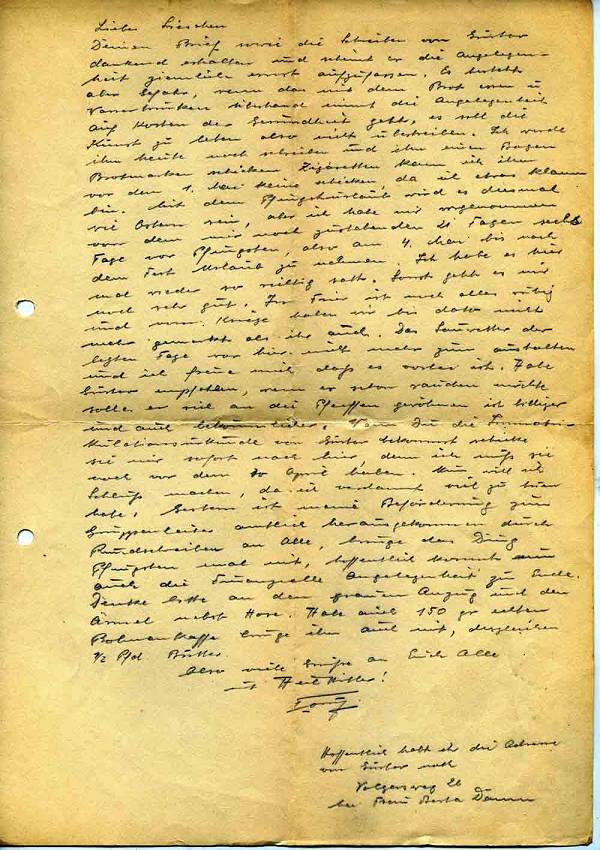 Liebes Lieschen
Deinen Brief sowie die Schreiben von Günter
dankend erhalten und scheint er die Angelegen-
heit ziemlich ernst aufzufassen. Es besteht
aber Gefahr, wenn das mit dem Brot essen u.
Wassertrinken überhand nimmt die Angelegenheit
auf Kosten der Gesundheit geht, es soll die
Kunst zu leben also nicht übertreiben. Ich werde
ihm heute noch schreiben und ihm einen Bogen
Brotmarken schicken Zigaretten kann ich ihm
vor dem 1. Mai keine schicken, da ich etwas klamm
bin. Mit dem Pfingsturlaub wird es diesmal
wie Ostern sein, aber ich habe mir vorgenommen
von dem mir noch zustehenden 21 Tagen sechs
Tage vor Pfingsten, also am 4. Mai bis nach
dem Fest Urlaub zu nehmen. Ich habe es hier
mal wieder so richtig satt. Sonst geht es mir
noch sehr gut. Im ist noch alles ruhig
und vom Kriege haben wir bis dato nicht
mehr gemerkt als ihr auch. Das Sauwetter der
letzten Tage war hier nicht mehr zum aushalten
und ich freue mich dass es vorbei ist. Habe
Günter empfohlen, wenn er schon rauchen möchte
solle er sich an die Pfeiffen gewöhnen ist billiger
und auch bekömmlicher. Wenn Du die Immatri-
kulationsurkunde von Günter bekommst schicke
sie mir sofort nach hier, denn ich muß sie
noch vor dem 30 April haben. Nun will ich
Schluß machen, da ich verdammt viel zu tun
habe. Gestern ist meine Beförderung zum
Gruppenleiter amtlich herausgekommen durch
Rundschreiben an Alle, bringe das Ding
Pfingsten mal mit, hoffentlich kommt nun
auch die Finanzielle Angelegenheit zu Ende.
Denke bitte an den grauen Anzug und den
Ärmel nebst Hose. Habe auch 150 gr echten
Bohnenkaffe bringe ihn auch mit, desgleichen
1/2 Pfd Butter.
Also viele Grüße an Euch Alle
mit Heil Hitler!
Hoffentlich habt ihr die Adresse
von Günter noch
Volgersweg 26
bei Frau Berta Damm